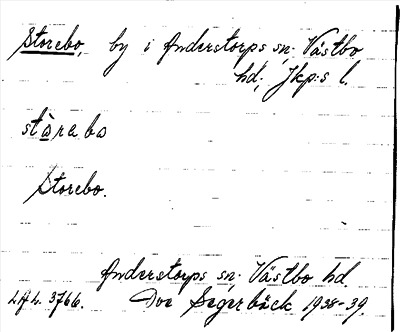 Storebo, by i Anderstorps sn. Västbo
hd, Jkp:s l.
stòrebo
Storebo.
Anderstorps sn. Västbo hd
L.f.L. 3766. Segerbäck 1938-39.